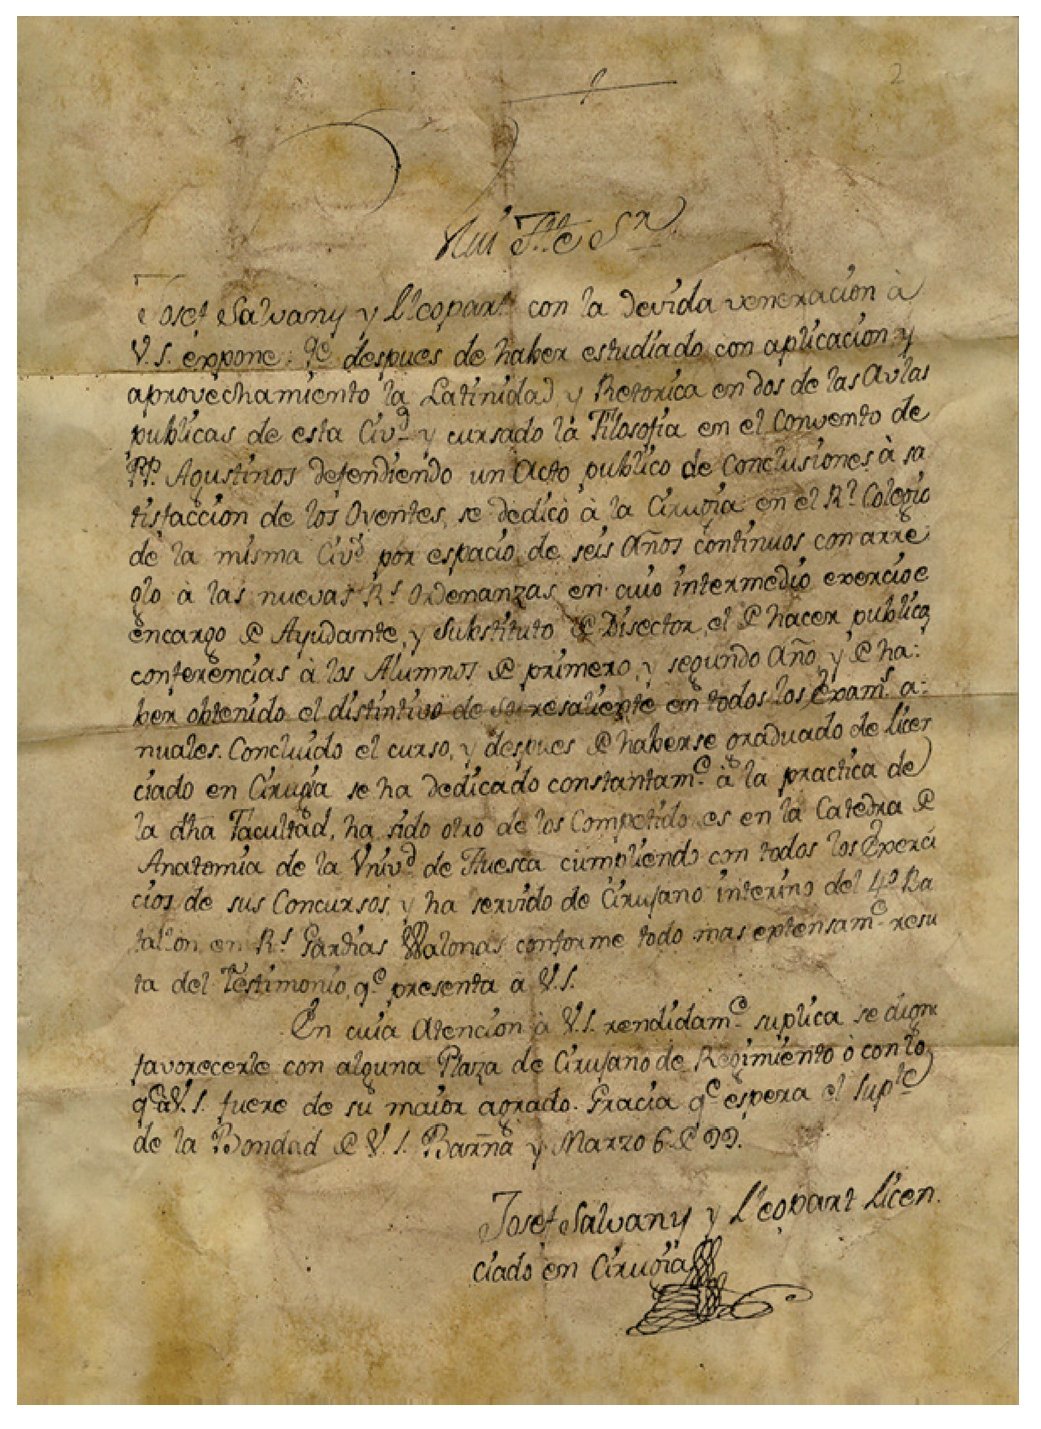 2
Mui Ill.e Sr.
Josef Salvany y Lleopart con la devida veneracion à
V.S. expone: qe despues de haber estudiado con aplicacion y
aprovechamiento la Latinidad y Retorica en dos de las Aulas
publicas de esta Civd y cursado la Filosofia en el Convento de
PP. Agustinos defendiendo un Acto publico de Conclusiones à sa
tisfaccion de los Oyentes, se dedicó à la Cirugia en el Rl Colegio
de la misma Civd por espacio de seis Años continuos con arre
glo à las nuevas Rs Ordenanzas en cuio intermedio exercio e
encargo de Ayudante, y Substituto de Disector, el de hacer publicas
conferencias à los Alumnos de primero, y segundo Año, y de ha:
ber obtenido el distintivo de Sobresaliente en todos los Exams. a:
nuales. Concluido el curso, y despues de haberse graduado de licen
ciado en Cirugia se ha dedicado constantamte à la practica de
la dha Facultad, ha sido otro de los Competidores en la Catedra de
Anatomia de la Univd de Huesca cumpliendo con todos los Exerci
cios de sus Concursos, y ha servido de Cirujano interino del 4º Ba
tallon en Rs Gardias Walonas conforme todo mas extensamte resu
ta del Testimonio, qe presenta a V.S.
En cuia Atencion à V.S. rendidamte suplica se digne
favorecerle con alguna Plaza de Cirujano de Regimiento ò con lo
qe à V.S. fuere de su maior agrado. Gracia qe espera el Suple
de la Bondad de V.S. Barña y Marzo 6 de 99.
Josef Salvany y Lleopart Licen
ciado en Cirugia